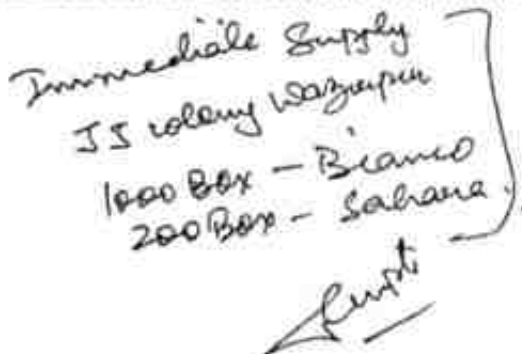 Immediate Supply
JJ colony Wazirpur
1000 Box - Bianco
200 Box - Sahara.